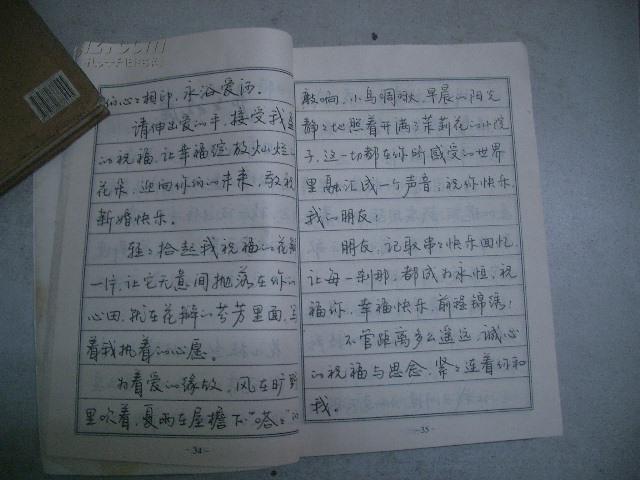 你心心相印,永浴爱河。
请伸出爱的手,接受我
的祝福,让幸福绽放灿烂
花朵,迎向你们的未来,敬祝
新婚快乐。
轻轻拾起我祝福的花瓣
一片,让它无意间抛落在你的
心田,就在花瓣的芬芳里面,
着我执着的心愿。
为着爱的缘故,风在旷野
里吹着,夏雨在屋檐下“嗒嗒”的
-34-
敲响,小鸟啁啾,早晨的阳光
静静地照着开满了茉莉花的小院
子,这一切都在你所感受的世界
里融汇成一个声音:祝你快乐,
我的朋友!
朋友,记取串串快乐回忆,
让每一刹那,都成为永恒,祝
福你,幸福快乐,前程锦绣!
不管距离多么遥远,诚心
的祝福与思念,紧紧连着你和
我。
-35-